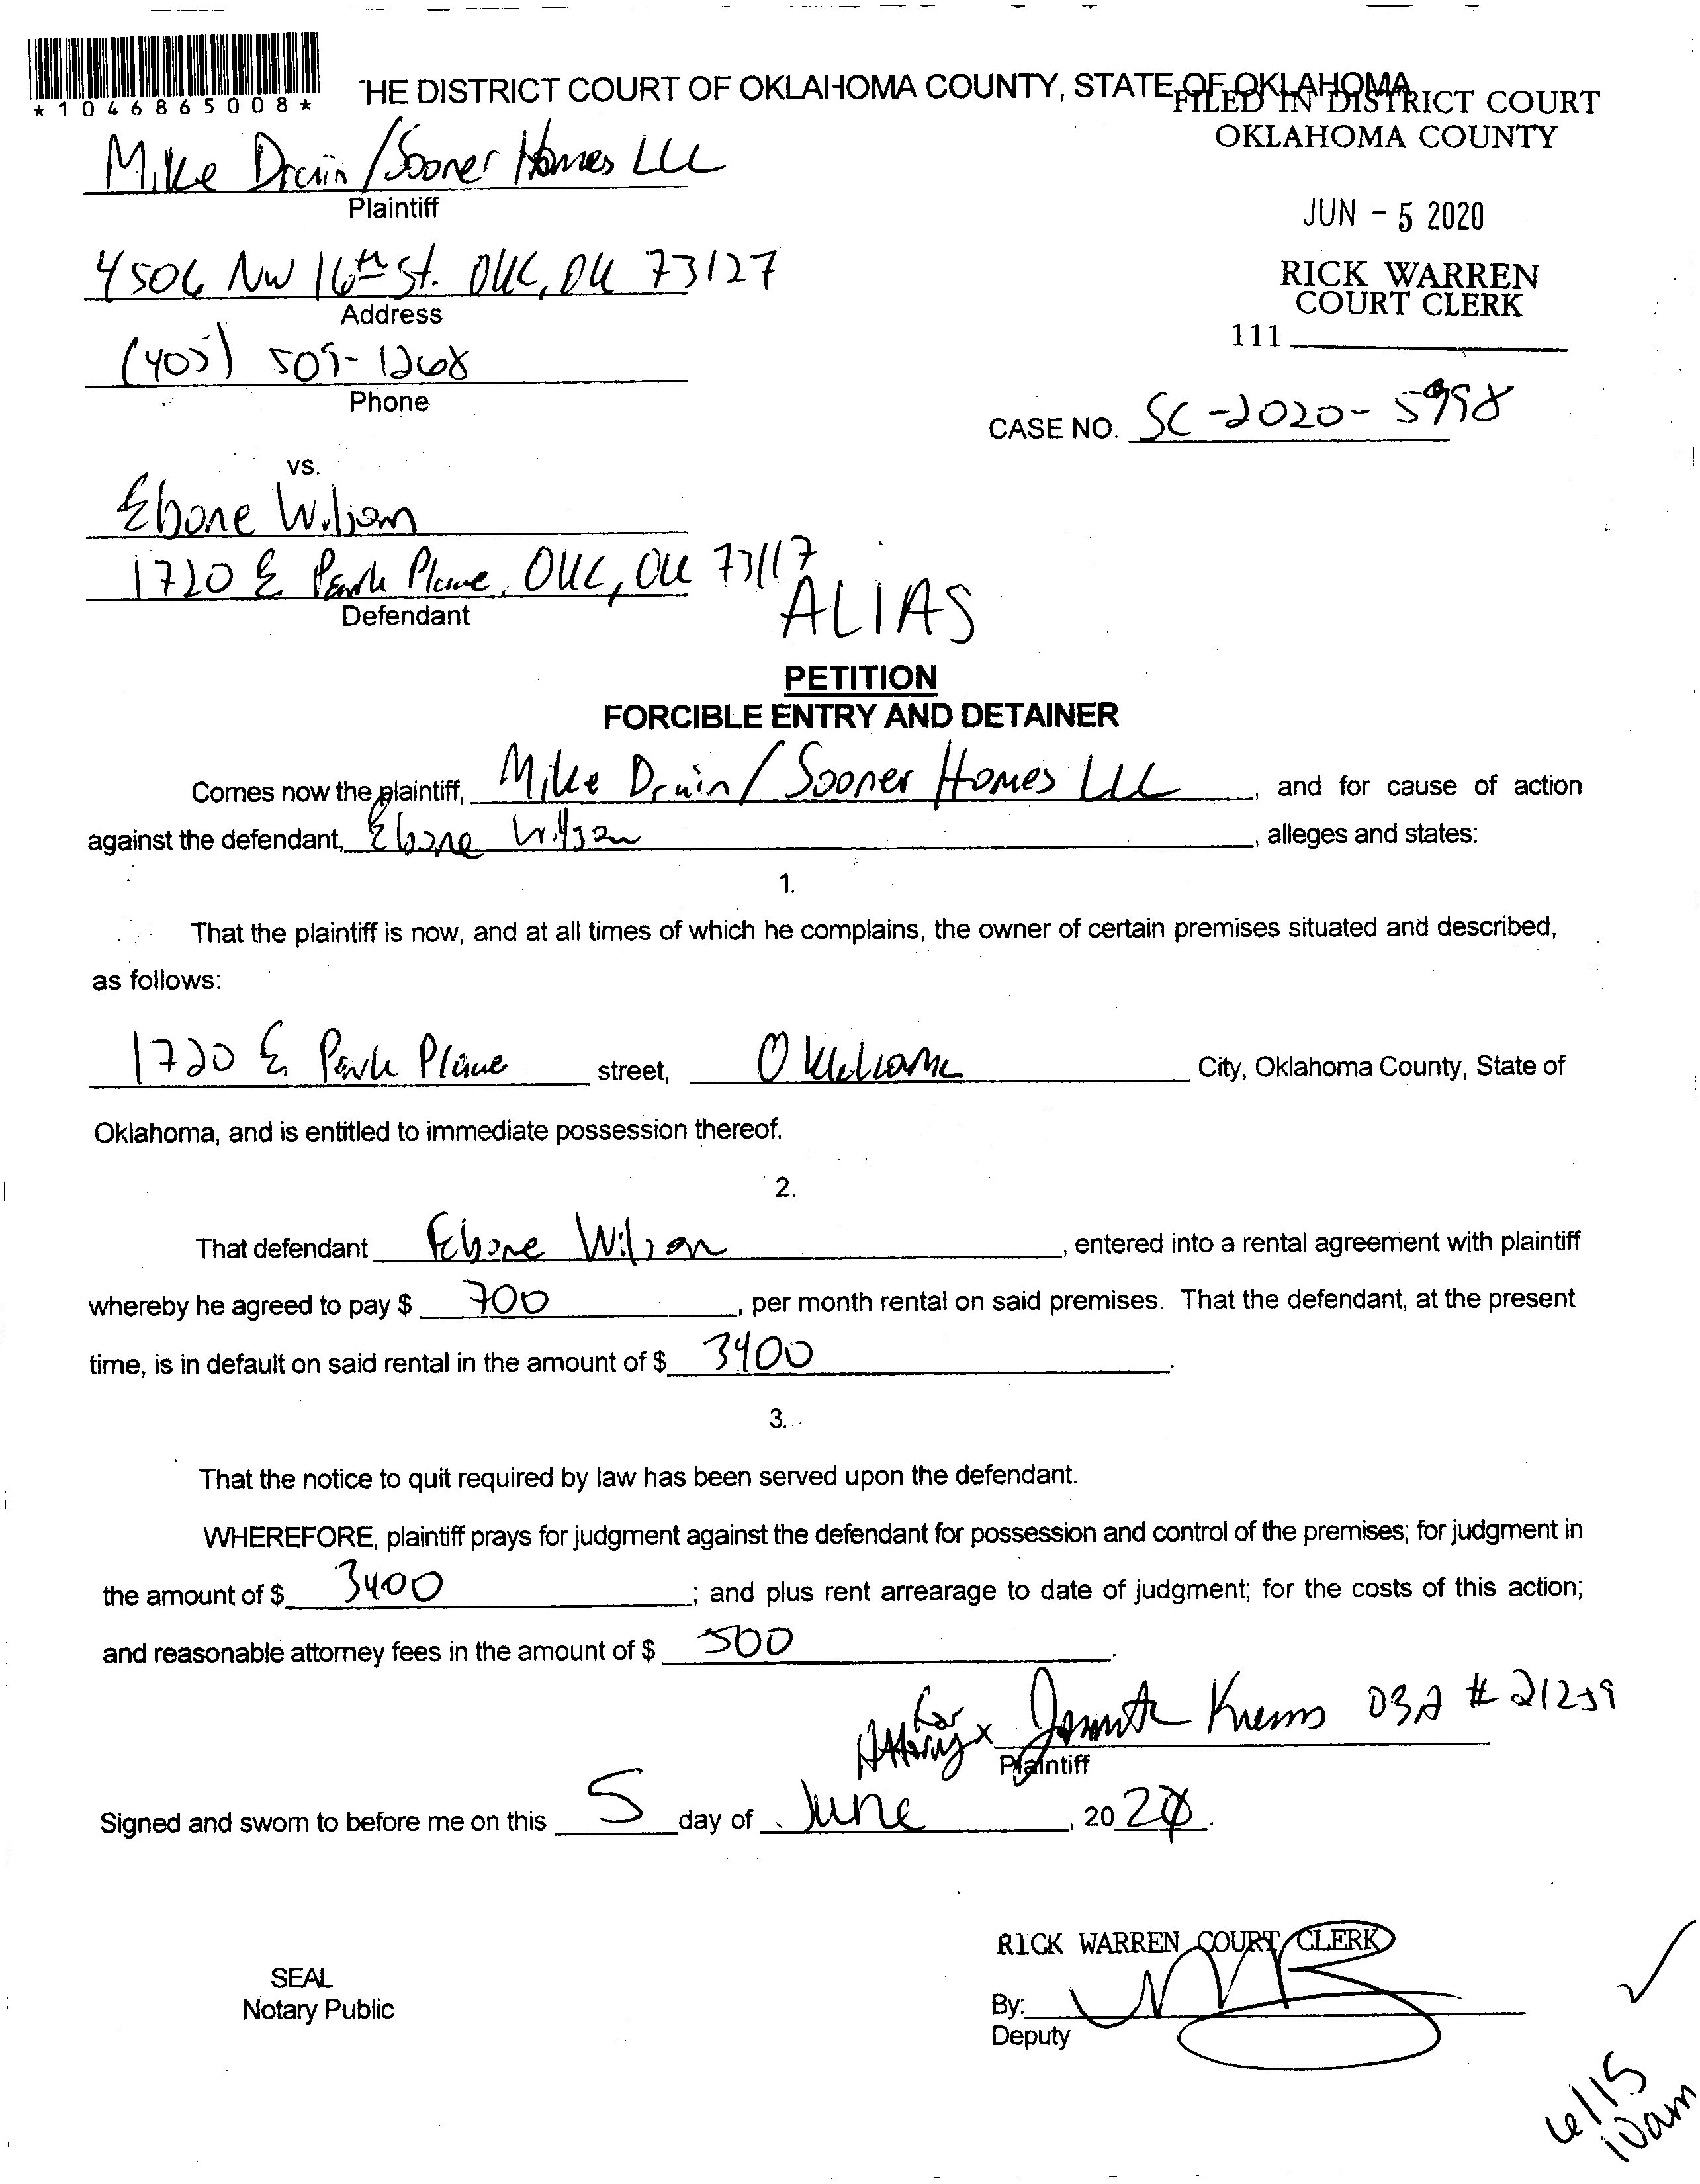 *1046865008*
HE DISTRICT COURT OF OKLAHOMA COUNTY, STATE OF OKLAHOMA
FILED IN DISTRICT COURT
OKLAHOMA COUNTY
JUN - 5 2020
RICK WARREN
COURT CLERK
111
Mike Drain / Sooner Homes LLC
Plaintiff
4506 NW 16th St. OKC, OK 73127
Address
(405) 509-1268
Phone
CASE NO. SC-2020-5998
vs.
Ebone Wilson
1720 E Park Place, OKC, OK 73117
Defendant
ALIAS
PETITION
FORCIBLE ENTRY AND DETAINER
Comes now the plaintiff, Mike Drain / Sooner Homes LLC, and for cause of action
against the defendant, Ebone Wilson, alleges and states:
1.
That the plaintiff is now, and at all times of which he complains, the owner of certain premises situated and described,
as follows:
1720 E. Park Place street, Oklahoma City, Oklahoma County, State of
Oklahoma, and is entitled to immediate possession thereof.
2.
That defendant Ebone Wilson, entered into a rental agreement with plaintiff
whereby he agreed to pay $ 700, per month rental on said premises. That the defendant, at the present
time, is in default on said rental in the amount of $ 3400.
3.
That the notice to quit required by law has been served upon the defendant.
WHEREFORE, plaintiff prays for judgment against the defendant for possession and control of the premises; for judgment in
the amount of $ 3400; and plus rent arrearage to date of judgment; for the costs of this action;
and reasonable attorney fees in the amount of $ 500.
Attorney for x OBA # 21259
Plaintiff
Signed and sworn to before me on this 5 day of June, 2020.
RICK WARREN COURT CLERK
SEAL
Notary Public
By:
Deputy
6/15
10am